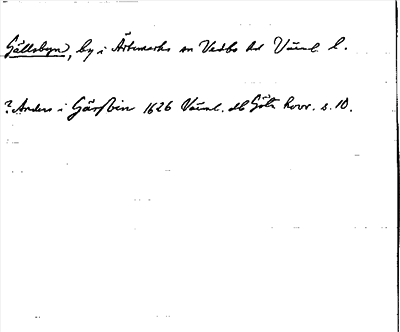 Gällsbyn, by i Ärtemarks sn Vedbo hd Väml. l.
? Anders i Gärßbin 1626 Väml. db Göta hovr. s. 10.